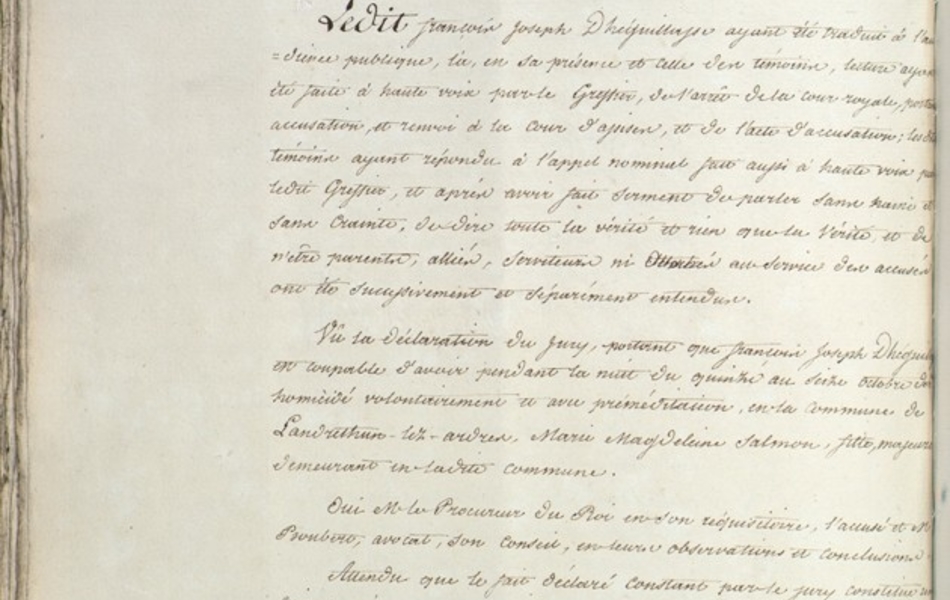 Ledit françois joseph Dhéguillage ayant été traduit à l'au
=dience publique, là, en sa présence et celle des témoins, lecture ayan
été faite à haute voix par le Greffier, de l'arrêt de la cour royale, portan
accusation, et renvoi à la cour d'assises, et de l'acte d'accusation; les
témoins ayant répondu à l'appel nominal fait aussi à haute voix p
ledit Greffier, et après avoir fait serment de parler sans haine et
sans crainte, de dire toute la vérité et rien que la Vérité, et de
n'être parents, alliés, serviteurs ni au service des accusés
ont été successivement et séparément entendus.
Vû la déclaration du jury, portant que françois joseph Dhégui
est coupable d'avoir pendant la nuit du quinze au seize octobre
homicidé volontairement et avec préméditation, en la commune de
Landrethun-lez-ardres, Marie Magdeleine Salmon, fille, majeure
demeurant en ladite commune.
Oui M. le Procureur du Roi en son réquisitoire, l'accusé et M
avocat, son Conseil, en leurs observations et conclusions
Attendu que le fait déclaré constant par le jury constitue